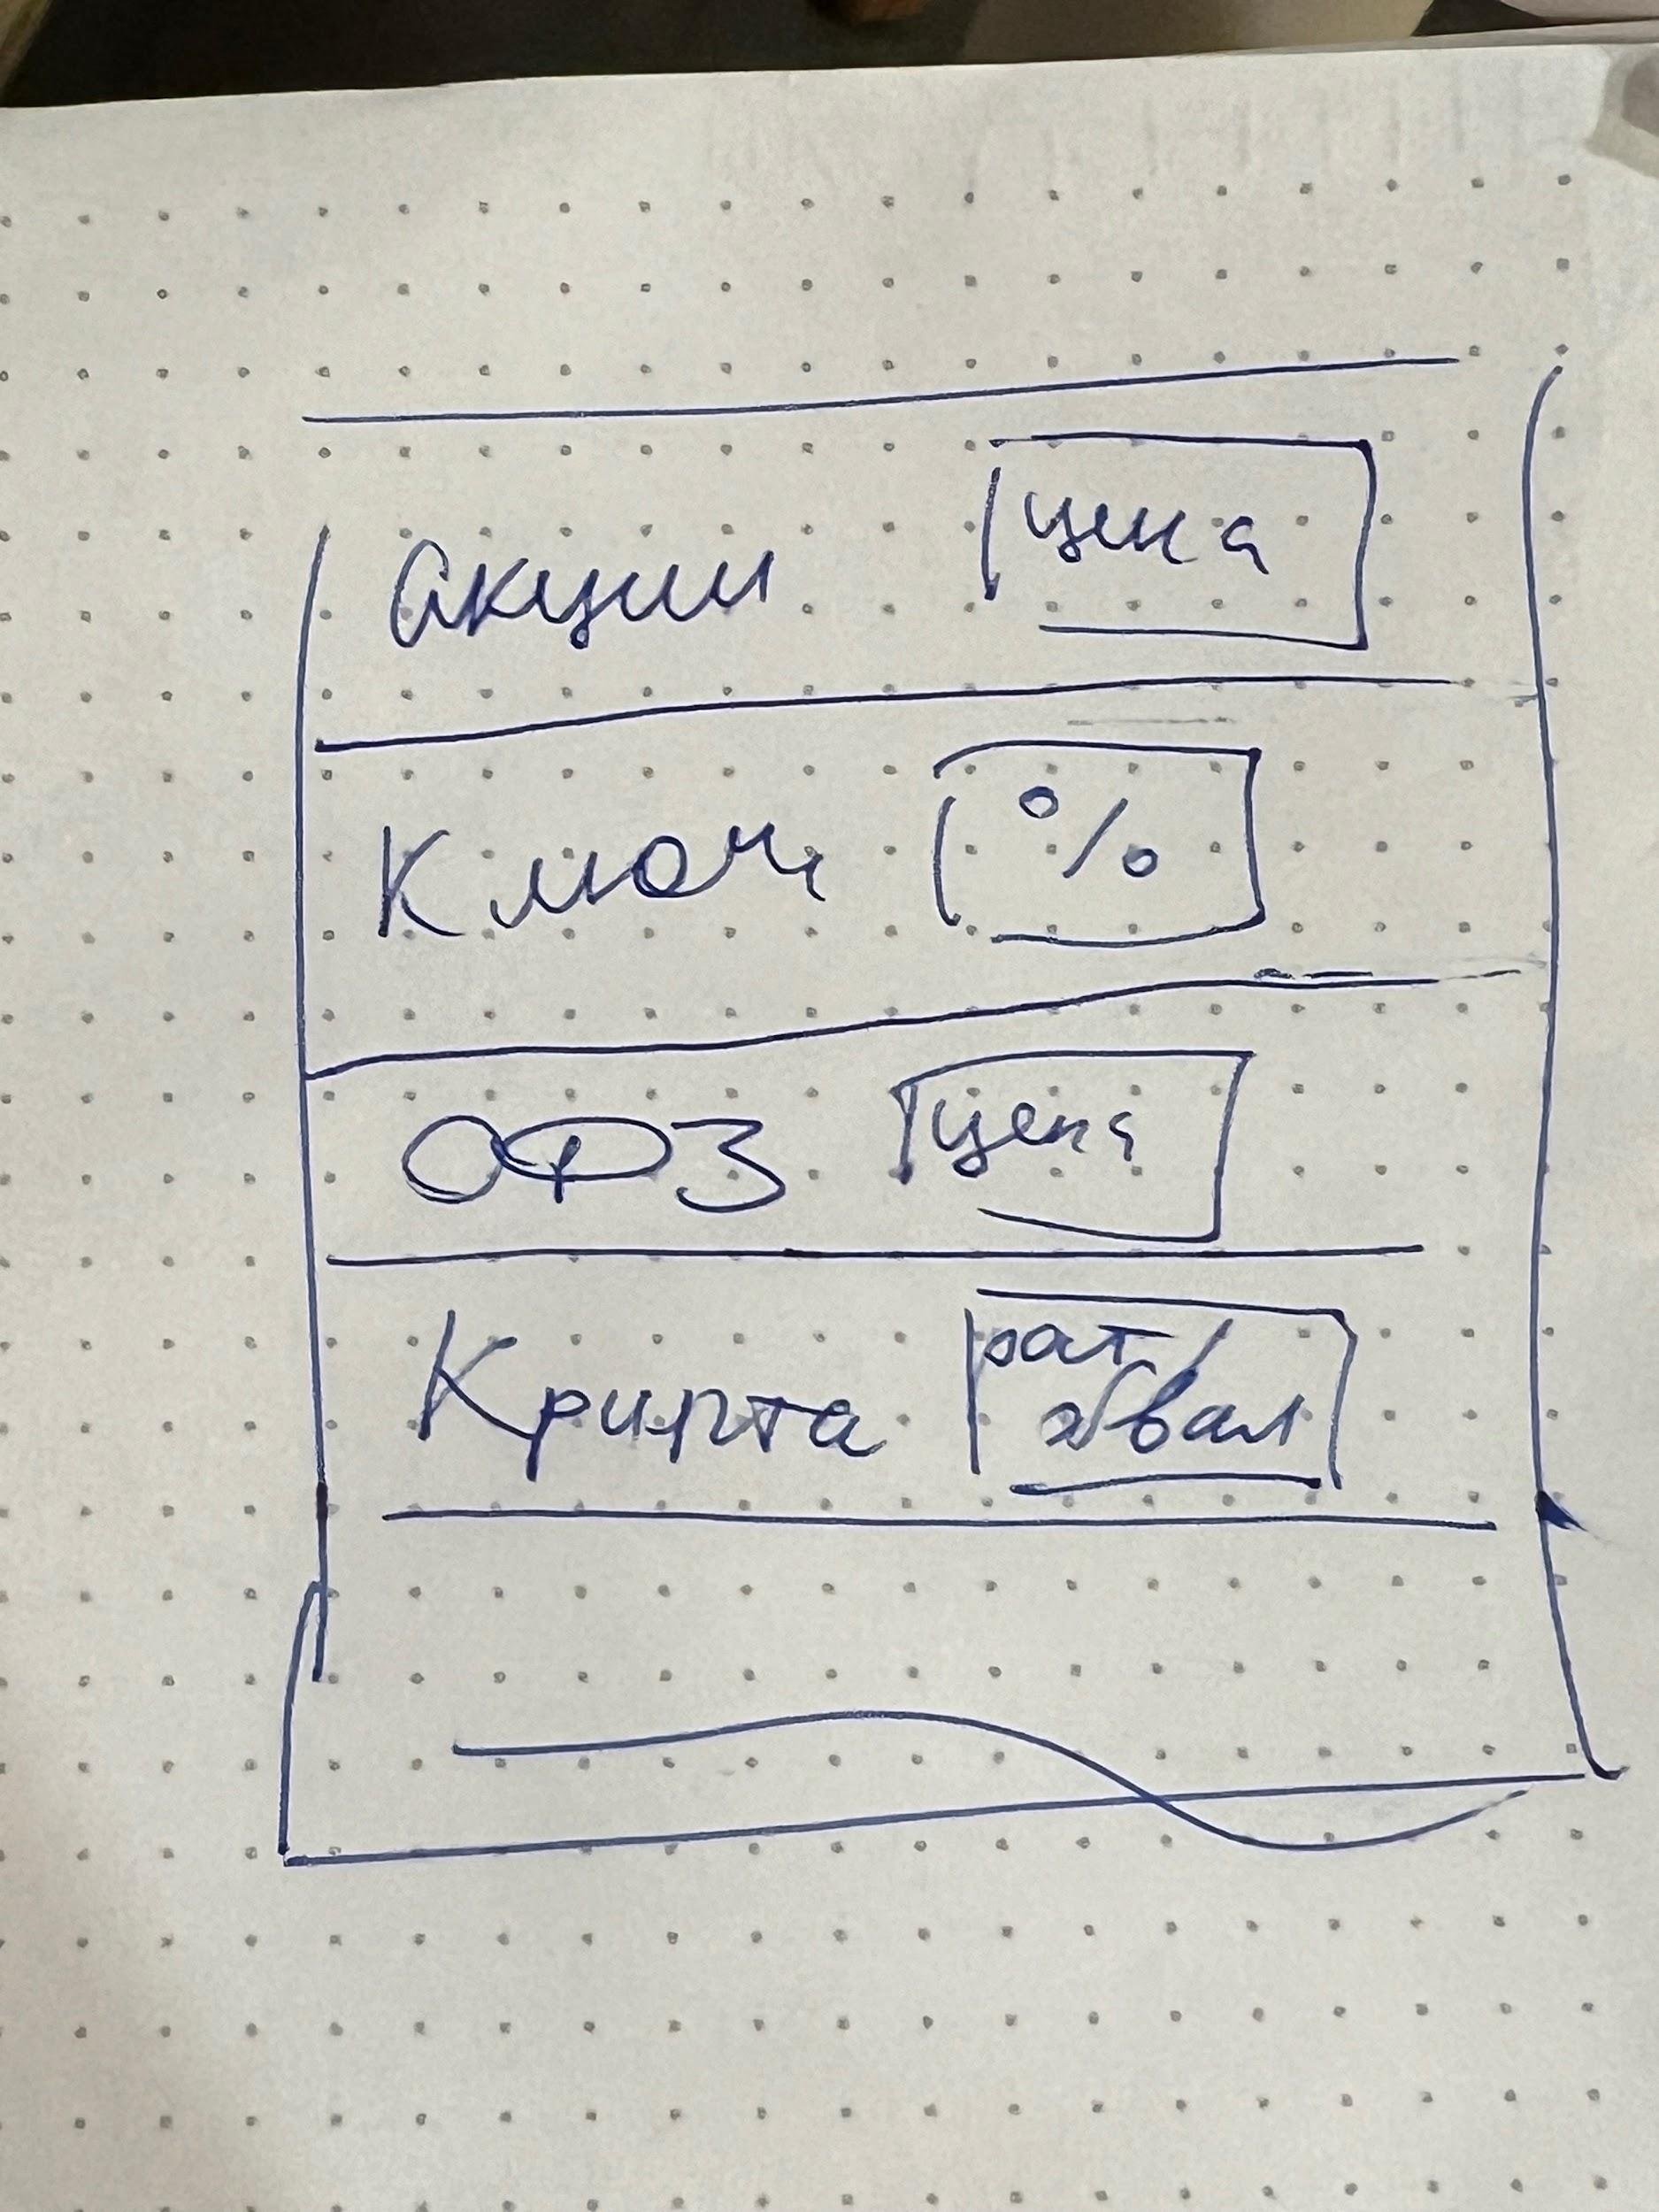 Акции цена
Ключ %
ОФЗ цена
Крипта рат/
обвал